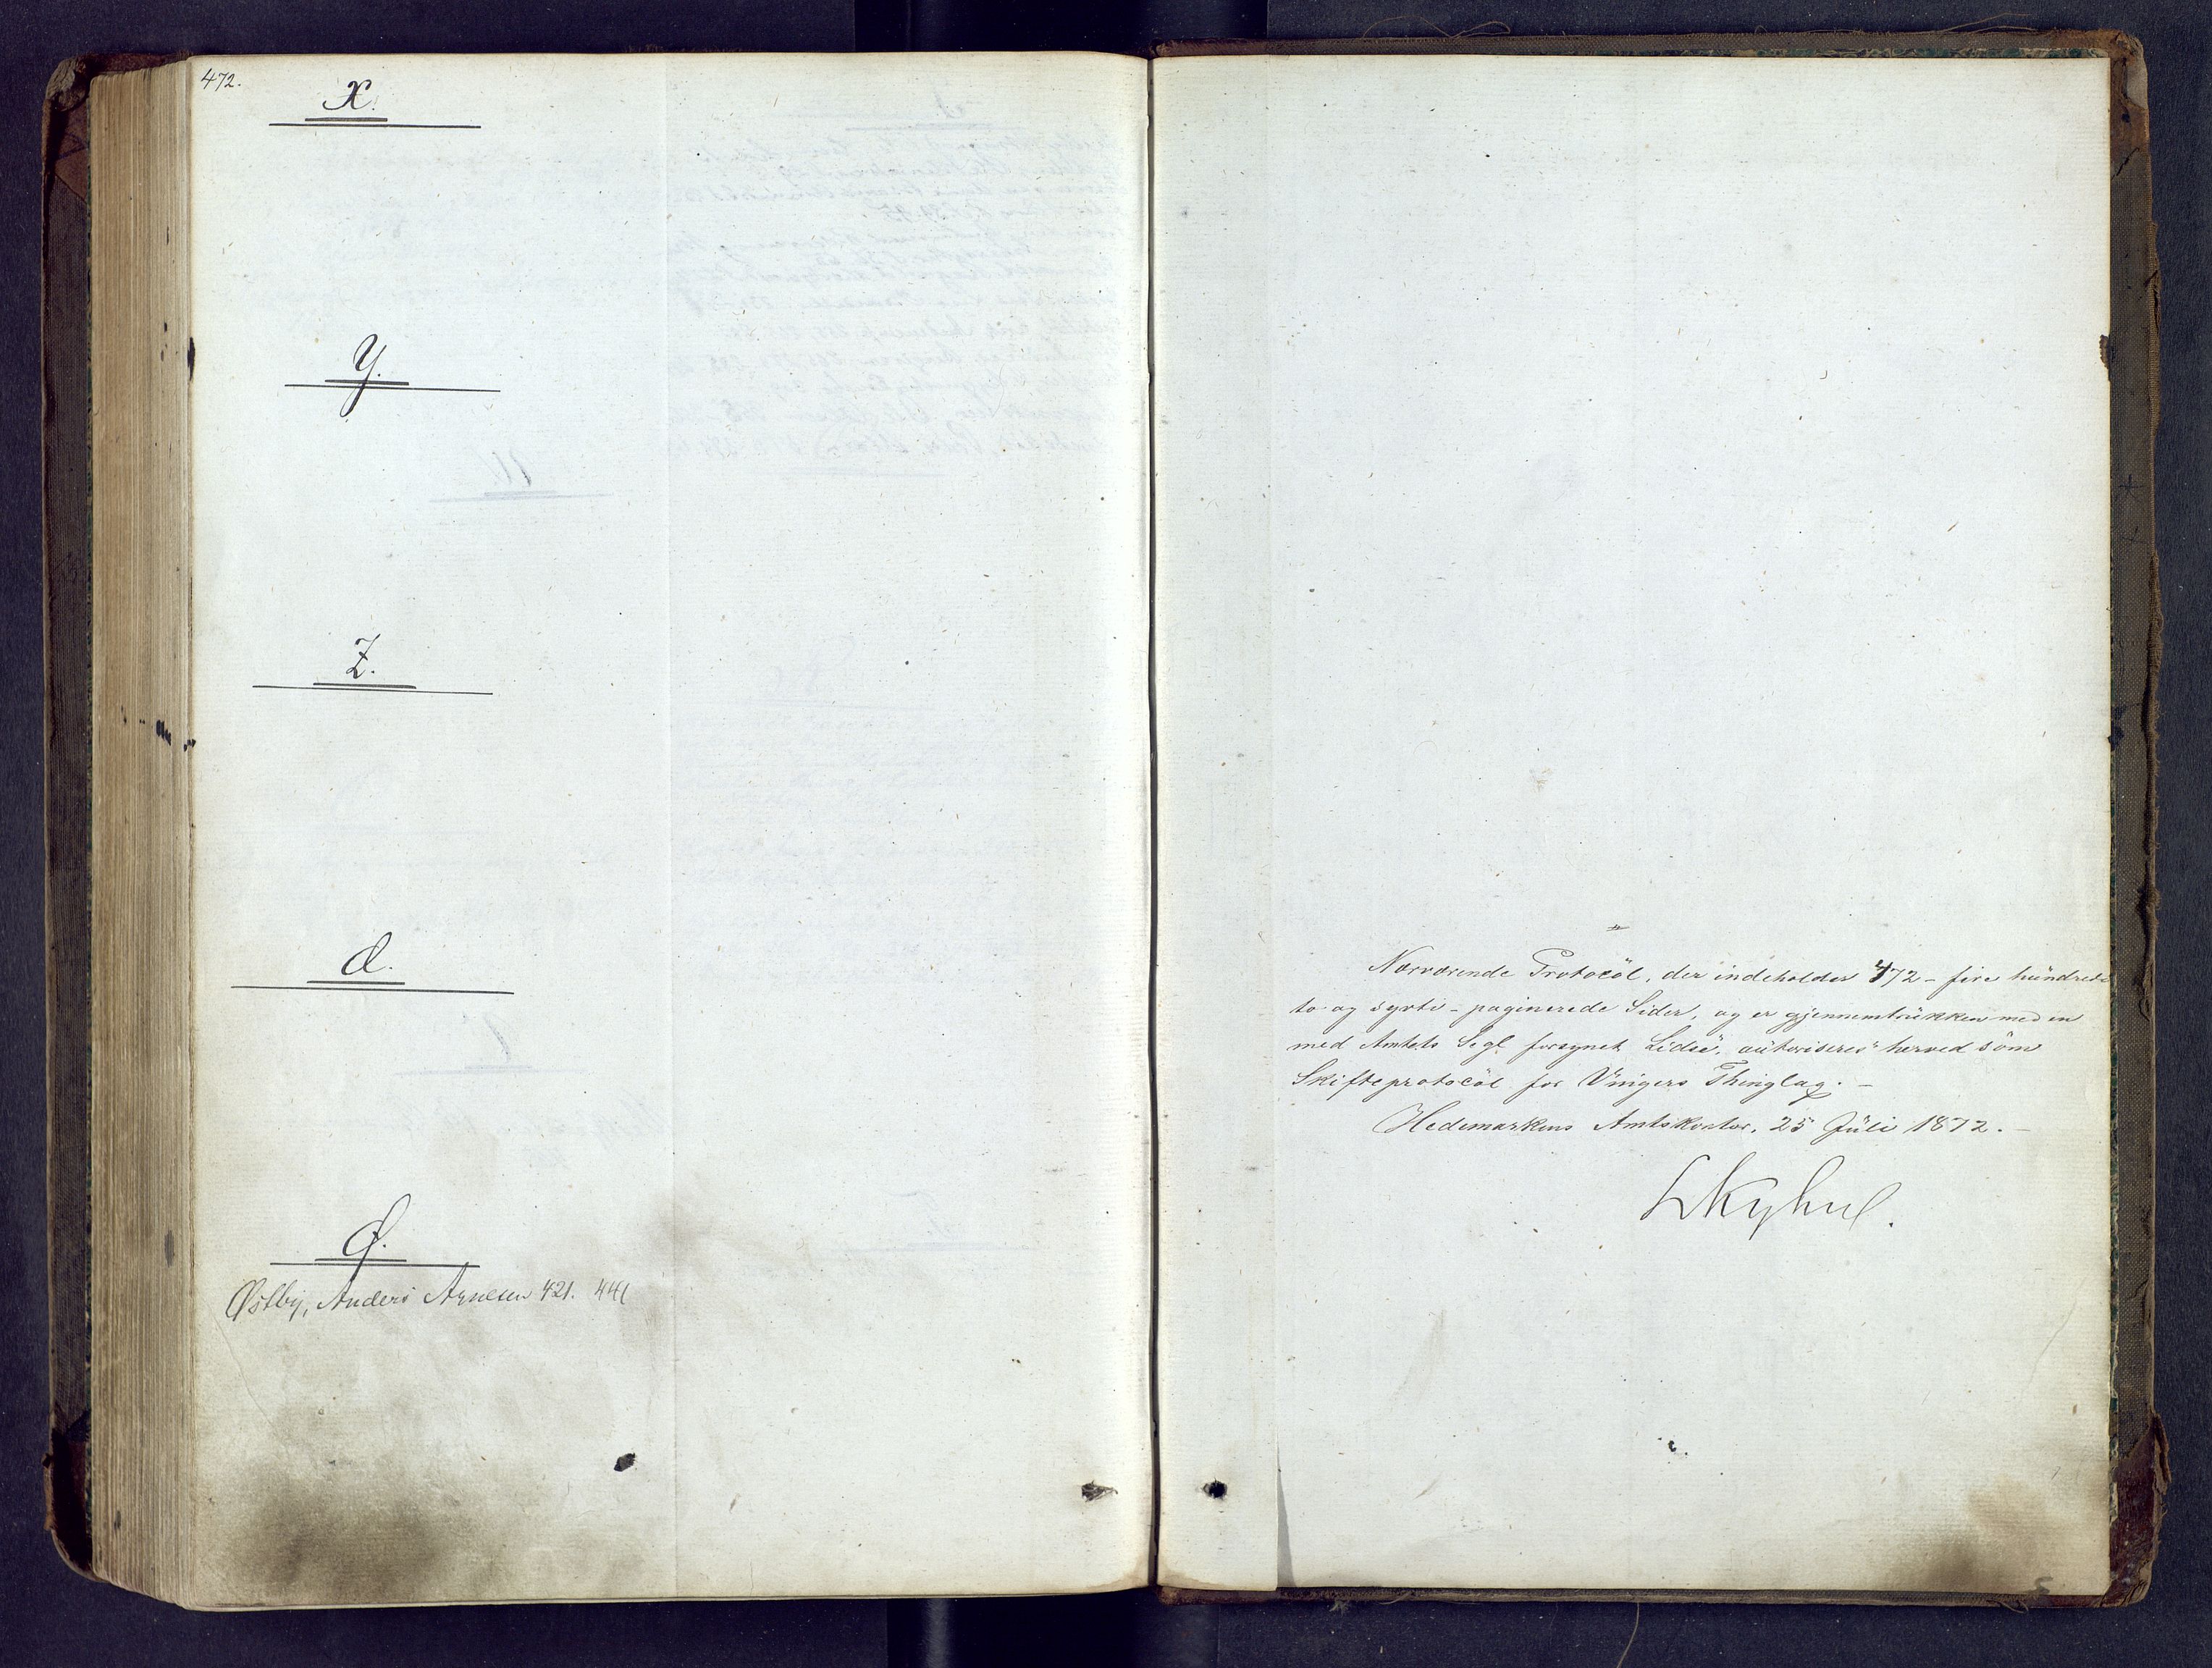 472.
X.
Y.
Z.
Æ.
Ø.
Østby, Anders Arnesen 421. 441
Nærværende Protocol, der indeholder 472 - fire hundrede
to og syvti - paginerede Sider, og er gjennemtrukken med en
med Amtets Segl forsynet Lidse, autoriseres herved som
Skifteprotocol for Vingers Thinglag. -
Hedemarkens Amtskontor, 25 Juli 1872. -